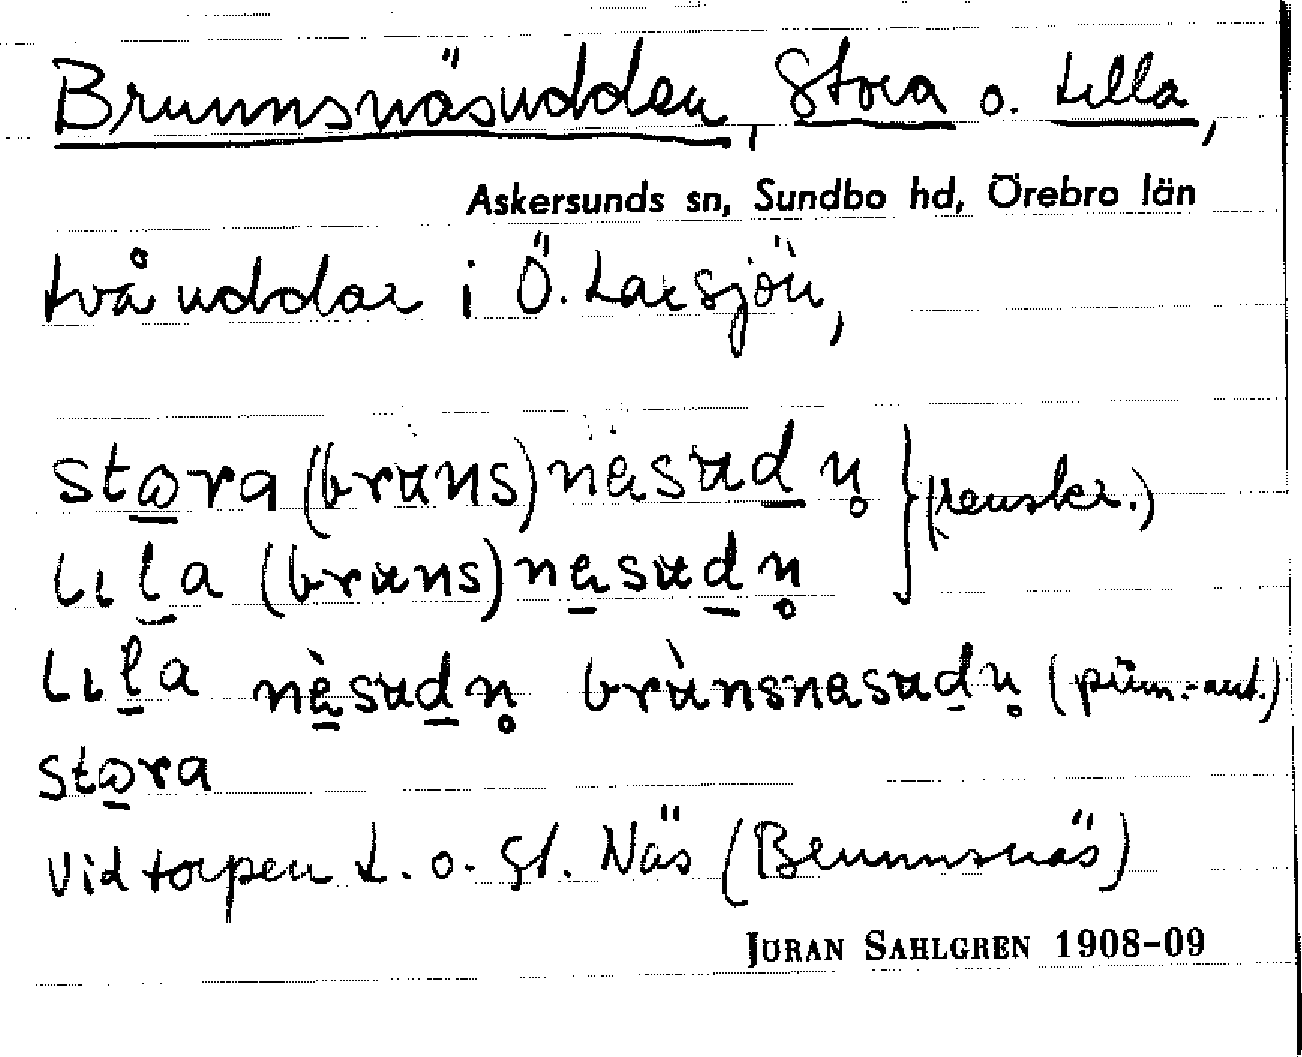 Brunnsnäsudden, Stora o. Lilla,
Askersunds sn, Sundbo hd, Örebro län
två uddar i Ö. Laxsjön,
stɷra (bruns) näsudn̥ } (renskr.)
lıla (bruns) näsudn̥
lıla nä̀sudn̥ brùnsnäsudn̥ (prim.-ant.)
stɷra
vid torpen L. o. St. Näs (Brunnsnäs)
JÖRAN SAHLGREN 1908-09